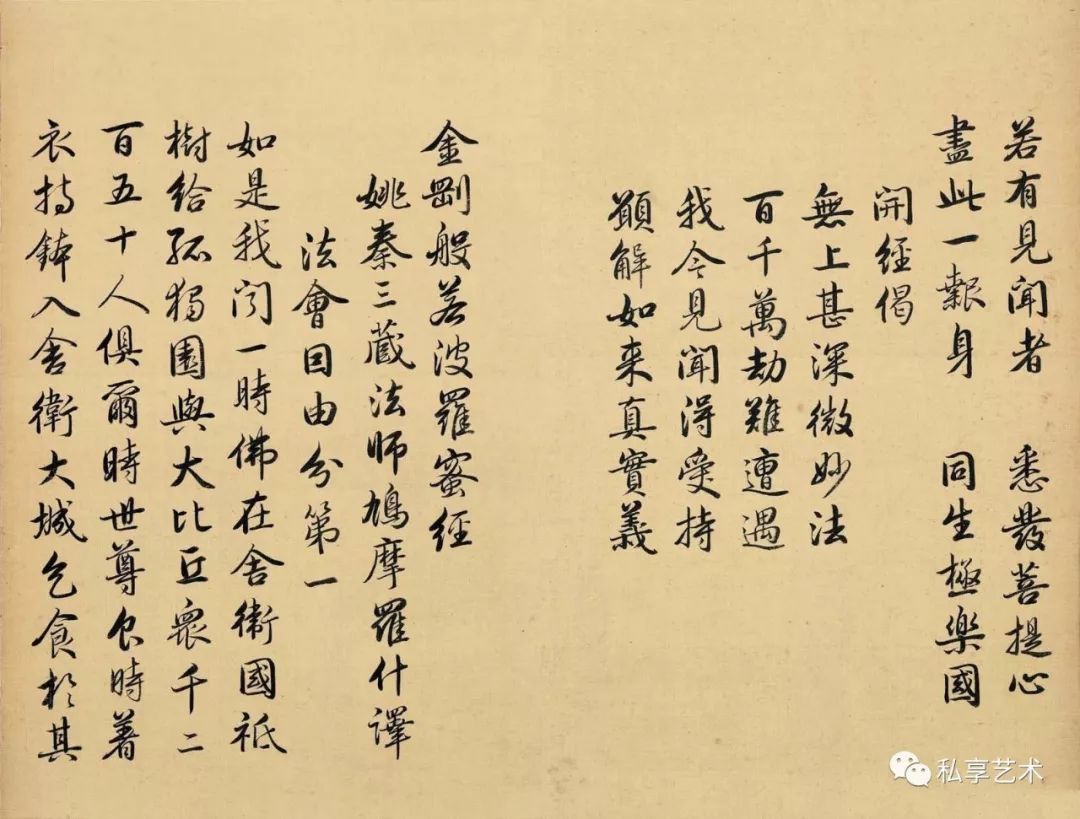 若有見聞者　悉發菩提心
盡此一報身　同生極樂國
開經偈
無上甚深微妙法
百千萬劫難遭遇
我今見聞得受持
願解如来真實義
金剛般若波羅蜜經
姚秦三藏法師鳩摩羅什譯
法會因由分第一
如是我聞一時佛在舍衛國祇
樹給孤獨園與大比丘衆千二
百五十人俱爾時世尊食時著
衣持鉢入舍衛大城乞食於其
私享艺术